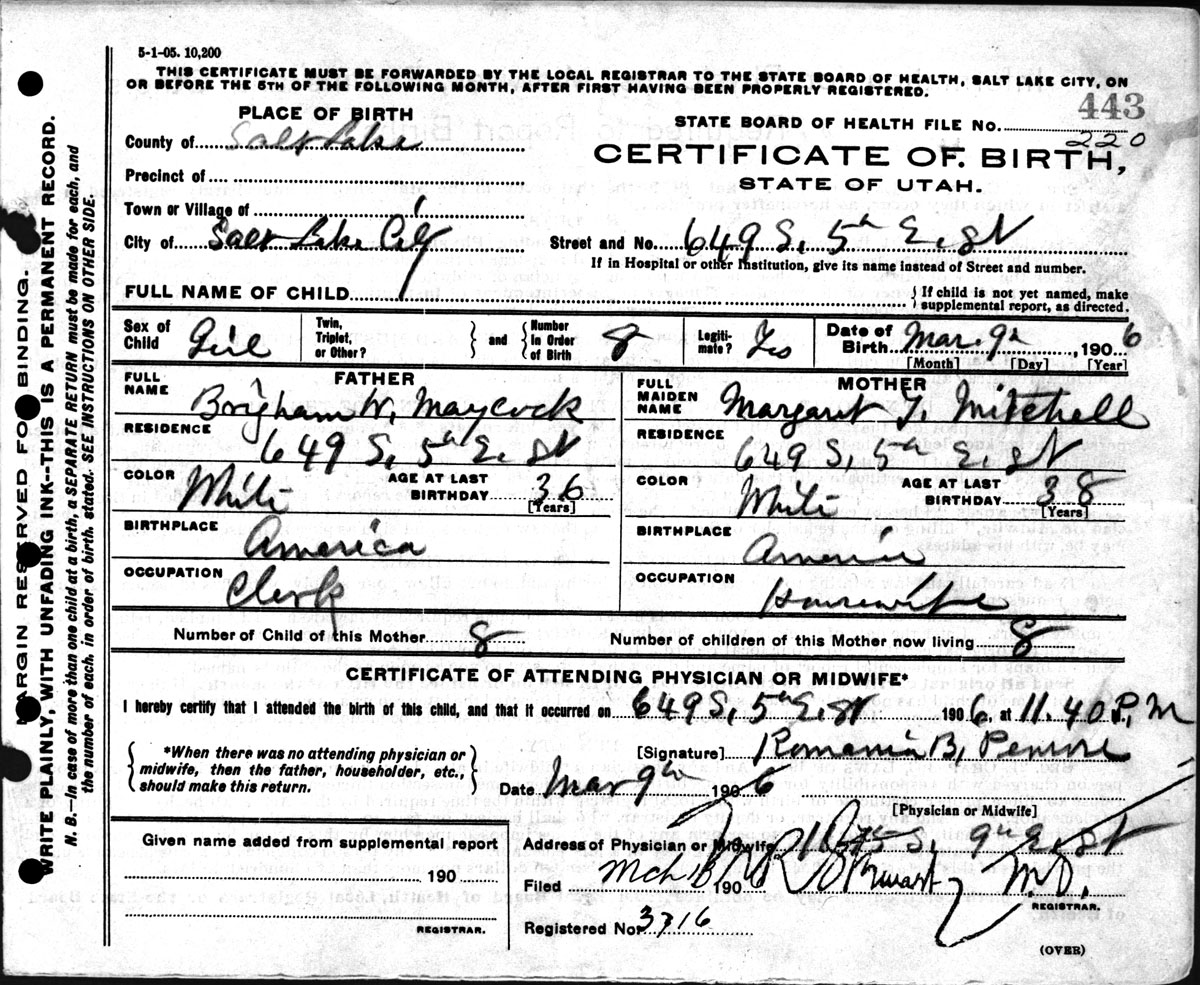 5-1-05. 10,200
THIS CERTIFICATE MUST BE FORWARDED BY THE LOCAL REGISTRAR TO THE STATE BOARD OF HEALTH, SALT LAKE CITY, ON
OR BEFORE THE 5TH OF THE FOLLOWING MONTH, AFTER FIRST HAVING BEEN PROPERLY REGISTERED.
443
PLACE OF BIRTH
STATE BOARD OF HEALTH FILE No.
220
County of Salt Lake
CERTIFICATE OF BIRTH,
Precinct of
STATE OF UTAH.
Town or Village of
City of Salt Lake City
Street and No. 649 S, 5th E, st
If in Hospital or other Institution, give its name instead of Street and number.
FULL NAME OF CHILD
{ If child is not yet named, make
supplemental report, as directed.
Sex of
Child Girl
Twin,
Triplet,
or Other?
} and {
Number
in Order
of Birth 8
Legiti-
mate? Yes
Date of
Birth Mar. 9th, 1906
[Month] [Day] [Year]
FATHER
FULL
NAME
Brigham W. Maycock
RESIDENCE
649 S, 5th E, st
COLOR
White
AGE AT LAST
BIRTHDAY 36
[Years]
BIRTHPLACE
America
OCCUPATION
Clerk
MOTHER
FULL
MAIDEN
NAME
Margaret Y. Mitchell
RESIDENCE
649 S, 5th E, st
COLOR
White
AGE AT LAST
BIRTHDAY 38
[Years]
BIRTHPLACE
America
OCCUPATION
Housewife
Number of Child of this Mother 8
Number of children of this Mother now living 8
CERTIFICATE OF ATTENDING PHYSICIAN OR MIDWIFE*
I hereby certify that I attended the birth of this child, and that it occurred on 649 S, 5th E, st 1906, at 11.40 P, M
{ *When there was no attending physician or
midwife, then the father, householder, etc.,
should make this return. }
[Signature] Romania B, Penrose
Date Mar 9th 1906
[Physician or Midwife]
Given name added from supplemental report
190
REGISTRAR.
Address of Physician or Midwife S, 9th E, st
Filed Mch 1906 M.D.
REGISTRAR.
Registered No. 3716
(OVER)
MARGIN RESERVED FOR BINDING.
WRITE PLAINLY, WITH UNFADING INK--THIS IS A PERMANENT RECORD.
N. B.--In case of more than one child at a birth, a SEPARATE RETURN must be made for each, and
the number of each, in order of birth, stated. SEE INSTRUCTIONS ON OTHER SIDE.